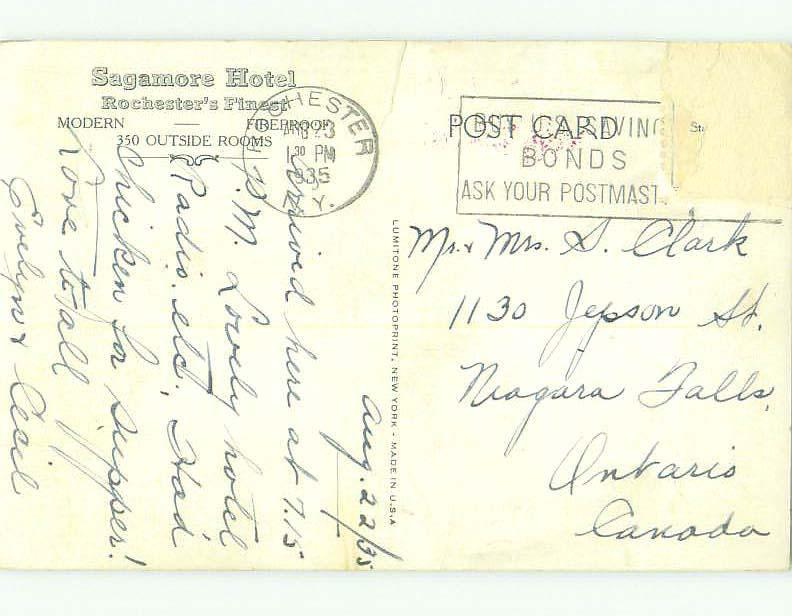 Sagamore Hotel
Rochester's Finest
MODERN — FIREPROOF
350 OUTSIDE ROOMS
ROCHESTER
AUG 23
1 30 PM
1935
N. Y.
POST CARD
BUY U.S. SAVING
BONDS
ASK YOUR POSTMAST
Aug. 22/35
Arrived here at 7.15
P.M. Lovely hotel
Radio. etc. Had
chicken for supper!
Love to all
Evelyn & Cecil
LUMITONE PHOTOPRINT, NEW YORK - MADE IN U.S.A
Mr. & Mrs. S. Clark
1130 Jepson St.
Niagara Falls,
Ontario
Canada